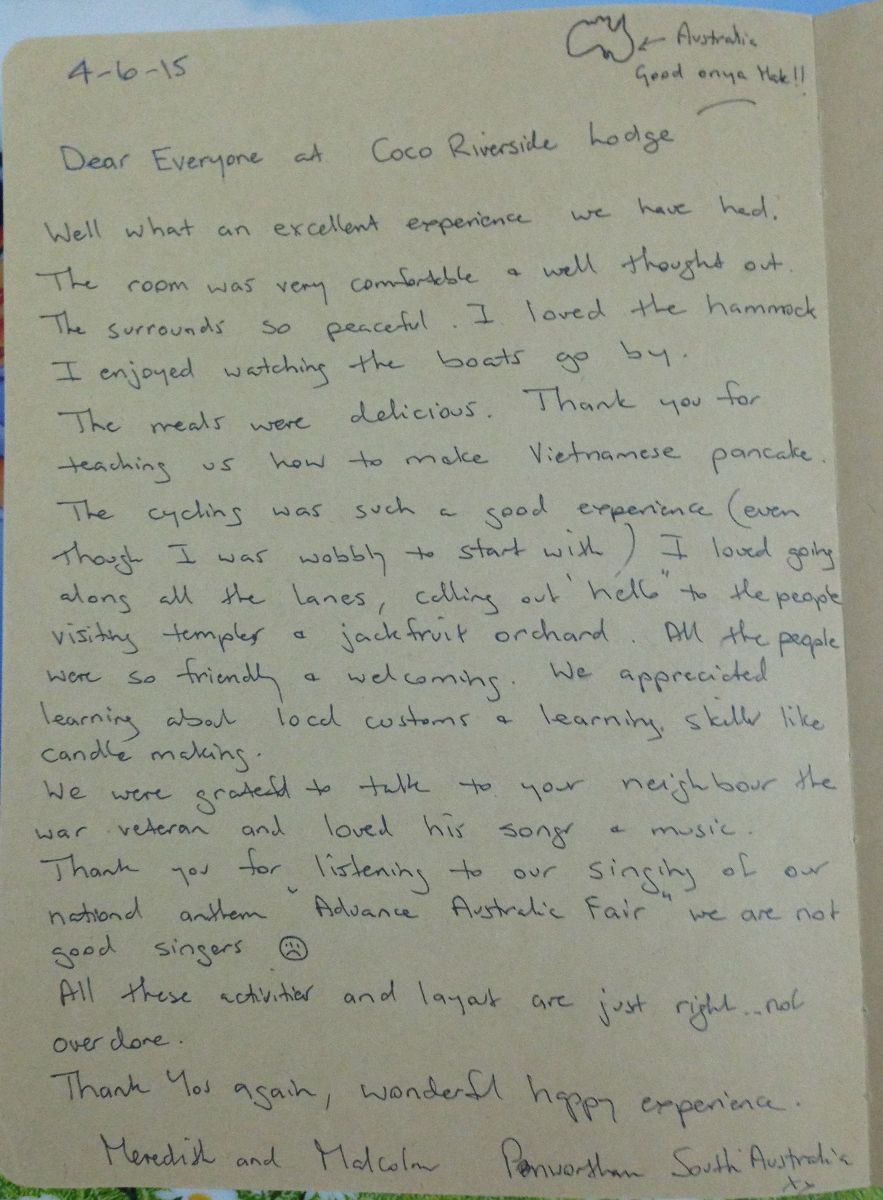 4-6-15
← Australia
Good onya Hak!!
Dear Everyone at Coco Riverside Lodge
Well what an excellent experience we have had.
The room was very comfortable & well thought out.
The surrounds so peaceful. I loved the hammock
I enjoyed watching the boats go by.
The meals were delicious. Thank you for
teaching us how to make Vietnamese pancake.
The cycling was such a good experience (even
though I was wobbly to start with) I loved going
along all the lanes, calling out "hello" to the people
visiting temples & jackfruit orchard. All the people
were so friendly & welcoming. We appreciated
learning about local customs & learning skills like
candle making.
We were grateful to talk to your neighbour the
war veteran and loved his songs & music.
Thank you for listening to our singing of our
national anthem "Advance Australia Fair" we are not
good singers ☹
All these activities and layout are just right..not
overdone.
Thank You again, wonderful happy experience.
Meredith and Malcolm Penwortham South Australia
xx